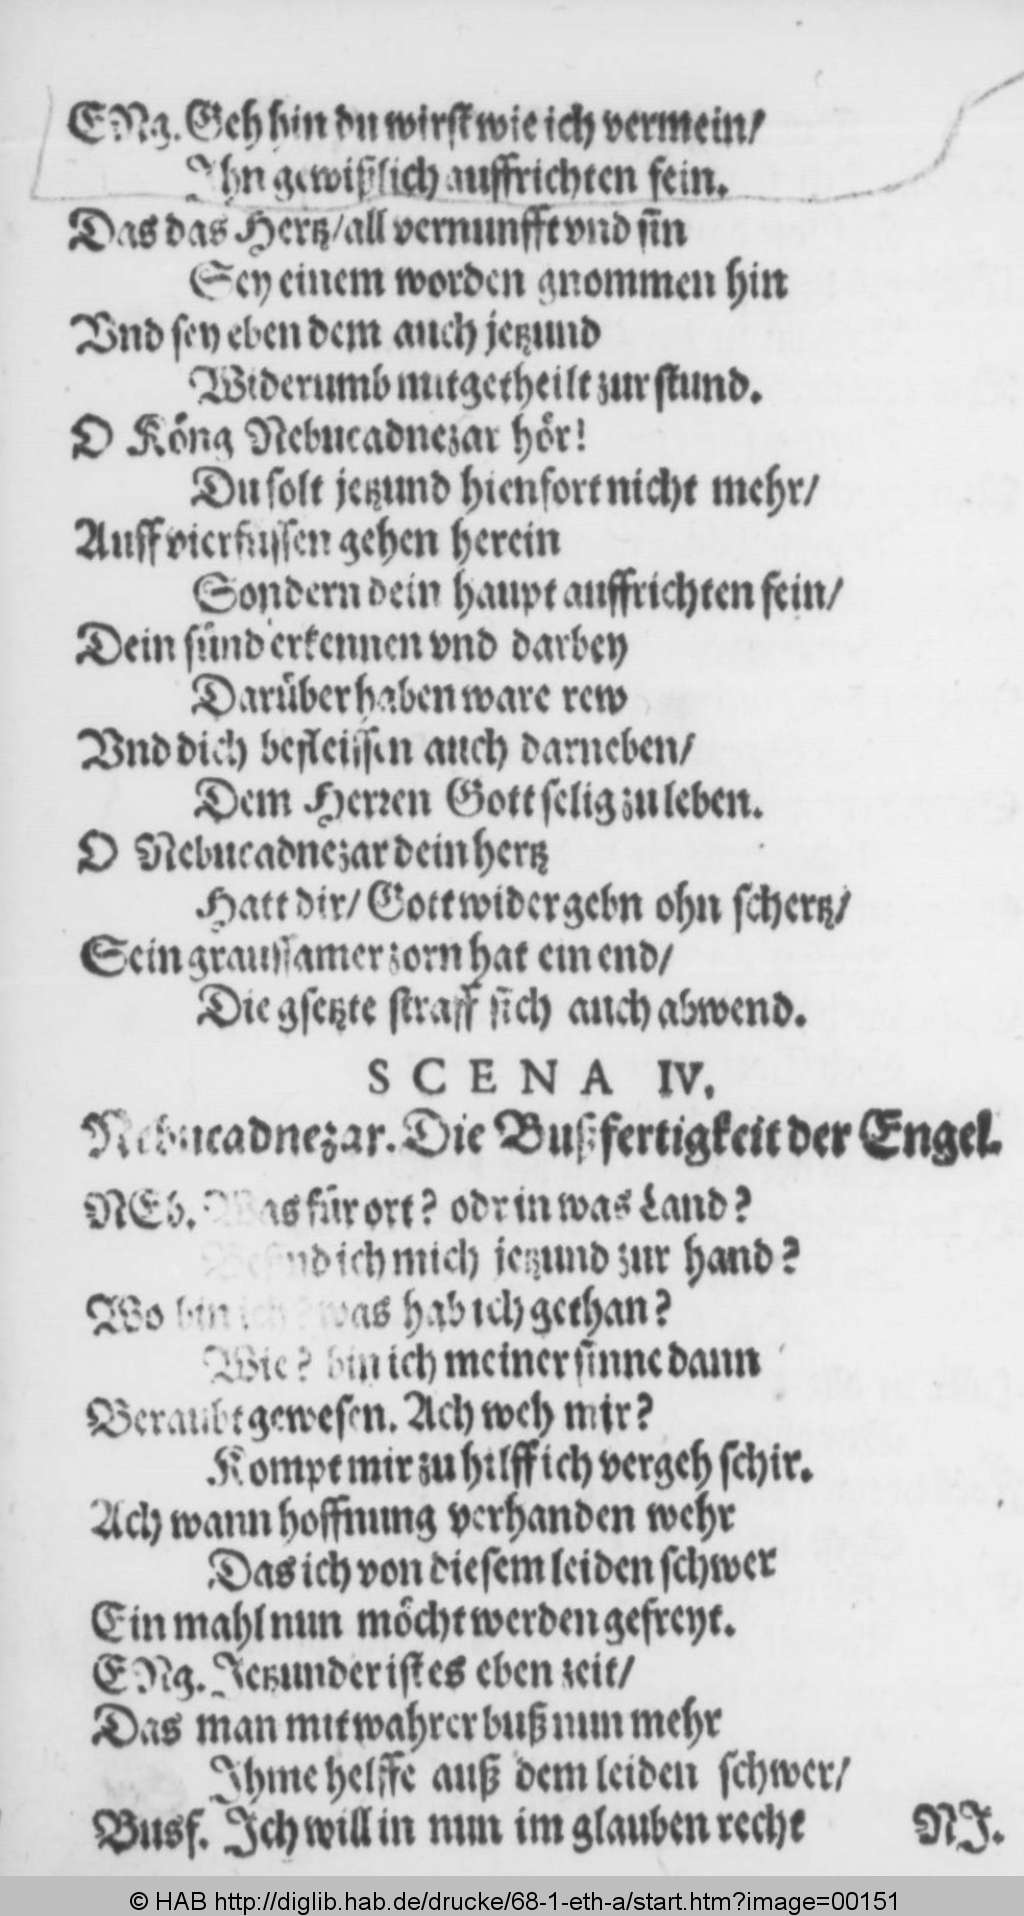 ENg. Geh hin du wirst wie ich vermein/
Ihn gewißlich auffrichten fein.
Das das Hertz/ all vernunfft vnd sinn
Sey einem worden gnommen hin
Vnd sey eben dem auch jetzund
Widerumb mitgetheilt zur stund.
O Köng Nebucadnezar hör!
Du solt jetzund hienfort nicht mehr/
Auff vier füssen gehen herein
Sondern dein haupt auffrichten fein/
Dein sünd erkennen vnd darbey
Darüber haben ware rew
Vnd dich befleissen auch darneben/
Dem Herren Gott selig zu leben.
O Nebucadnezar dein hertz
Hatt dir/ Gott wider gebn ohn schertz/
Sein graussamer zorn hat ein end/
Die gsetzte straff sich auch abwend.
SCENA IV.
Nebucadnezar. Die Bußfertigkeit der Engel.
NEb. Was für ort? odr in was Land?
Befind ich mich jetzund zur hand?
Wo bin ich? was hab ich gethan?
Wie? bin ich meiner sinne dann
Beraubt gewesen. Ach weh mir?
Kompt mir zu hilff ich vergeh schir.
Ach wann hoffnung verhanden wehr
Das ich von diesem leiden schwer
Ein mahl nun möcht werden gefreyt.
ENg. Jetzunder ist es eben zeit/
Das man mit wahrer buß nun mehr
Ihme helffe auß dem leiden schwer/
Busf. Ich will in nun im glauben recht NI.
© HAB http://diglib.hab.de/drucke/68-1-eth-a/start.htm?image=00151